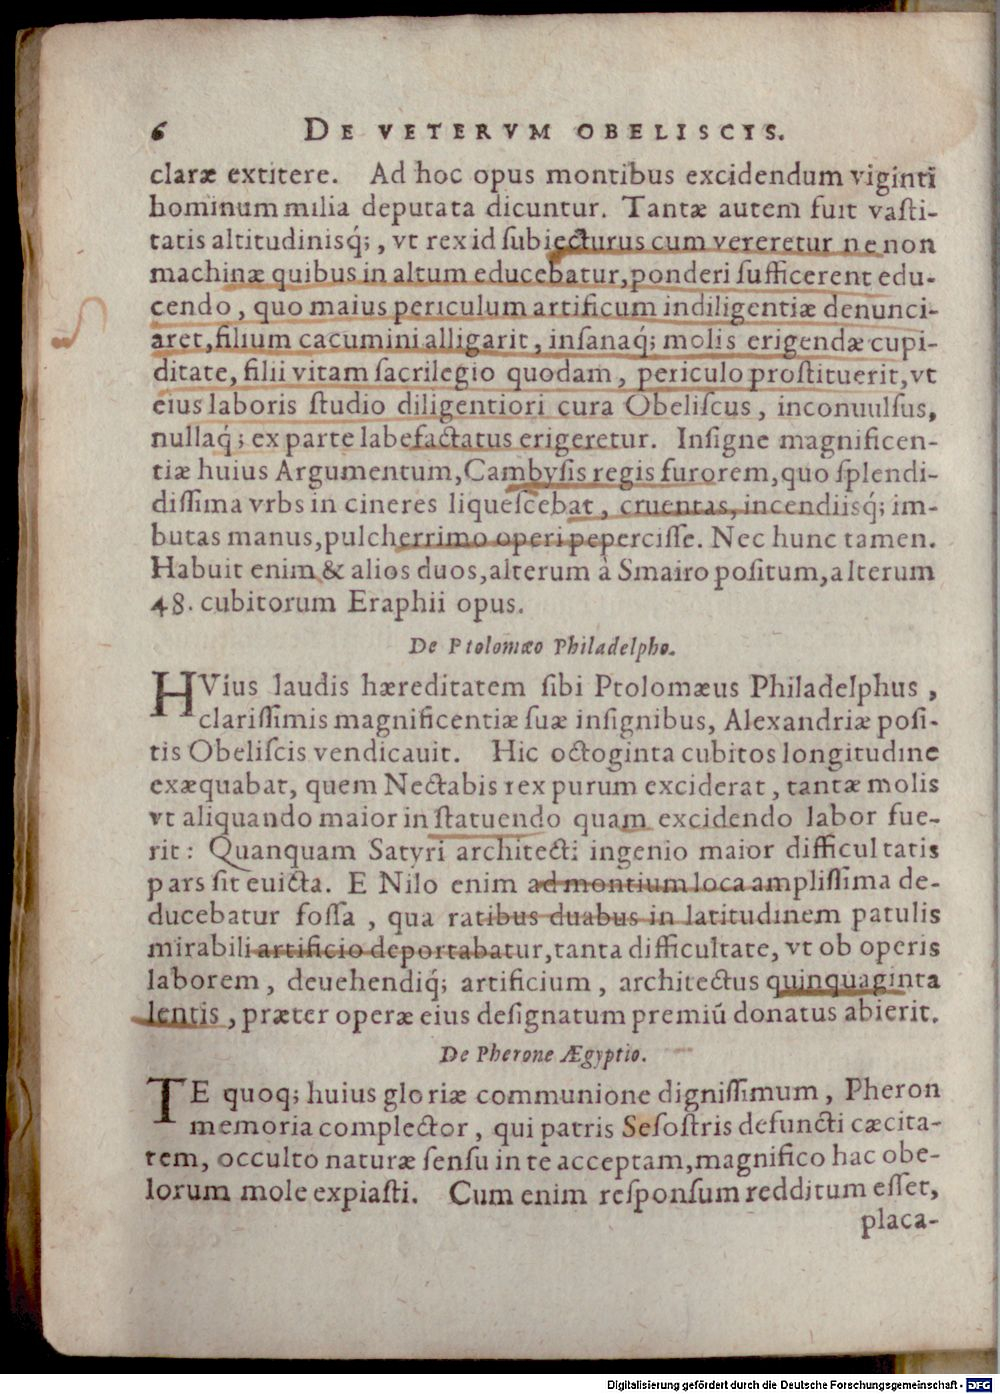 6 DE VETERVM OBELISCIS.
claræ extitere. Ad hoc opus montibus excidendum viginti
hominum milia deputata dicuntur. Tantæ autem fuit vaſti-
tatis altitudinisq́;, vt rex id ſubiecturus cum vereretur ne non
machinæ quibus in altum educebatur, ponderi ſufficerent edu-
cendo, quo maius periculum artificum indiligentiæ denunci-
aret, filium cacumini alligarit, inſanaq́; molis erigendæ cupi-
ditate, filii vitam ſacrilegio quodam, periculo proſtituerit, vt
eius laboris ſtudio diligentiori cura Obeliſcus, inconuulſus,
nullaq́; ex parte labefactatus erigeretur. Inſigne magnificen-
tiæ huius Argumentum, Cambyſis regis furorem, quo ſplendi-
diſſima vrbs in cineres liqueſcebat, cruentas, incendiisq́; im-
butas manus, pulcherrimo operi peperciſſe. Nec hunc tamen.
Habuit enim & alios duos, alterum à Smairo poſitum, alterum
48. cubitorum Eraphii opus.
De Ptolomæo Philadelpho.
HVius laudis hæreditatem ſibi Ptolomæus Philadelphus,
clariſſimis magnificentiæ ſuæ inſignibus, Alexandriæ poſi-
tis Obeliſcis vendicauit. Hic octoginta cubitos longitudine
exæquabat, quem Nectabis rex purum exciderat, tantæ molis
vt aliquando maior in ſtatuendo quam excidendo labor fue-
rit: Quanquam Satyri architecti ingenio maior difficultatis
pars ſit euicta. E Nilo enim ad montium loca ampliſſima de-
ducebatur foſſa, qua ratibus duabus in latitudinem patulis
mirabili artificio deportabatur, tanta difficultate, vt ob operis
laborem, deuehendiq́; artificium, architectus quinquaginta
lentis, præter operæ eius deſignatum premiū donatus abierit.
De Pherone Ægyptio.
TE quoq; huius gloriæ communione digniſſimum, Pheron
memoria complector, qui patris Seſoſtris defuncti cæcita-
tem, occulto naturæ ſenſu in te acceptam, magnifico hac obe-
lorum mole expiaſti. Cum enim reſponſum redditum eſſet,
placa-
Digitalisierung gefördert durch die Deutsche Forschungsgemeinschaft - DFG